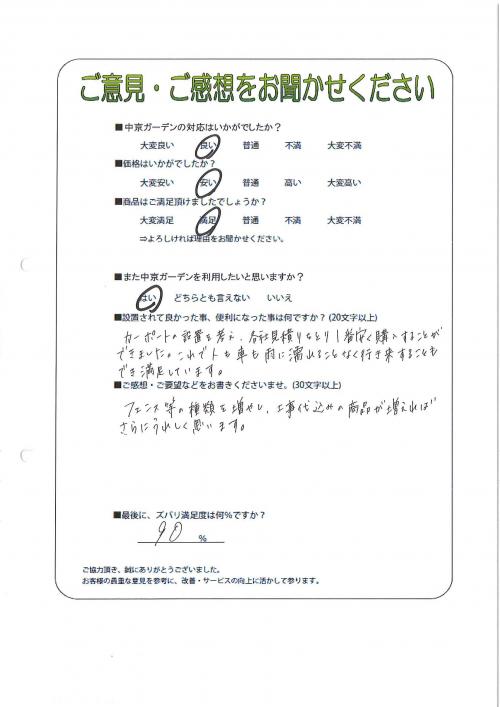 ご意見・ご感想をお聞かせください
■中京ガーデンの対応はいかがでしたか？
大変良い 良い 普通 不満 大変不満
■価格はいかがでしたか？
大変安い 安い 普通 高い 大変高い
■商品はご満足頂けましたでしょうか？
大変満足 満足 普通 不満 大変不満
⇒よろしければ理由をお聞かせください。
■また中京ガーデンを利用したいと思いますか？
はい どちらとも言えない いいえ
■設置されて良かった事、便利になった事は何ですか？(20文字以上)
カーポートの設置を考え、各社見積りをとり1番安く購入することが
できました。これで人も車も雨に濡れることなく行き来することも
でき満足しています。
■ご感想・ご要望などをお書きくださいませ。(30文字以上)
フェンス等の種類を増やし、工事代込みの商品が増えれば
さらにうれしく思います。
■最後に、ズバリ満足度は何％ですか？
90 ％
ご協力頂き、誠にありがとうございました。
お客様の貴重な意見を参考に、改善・サービスの向上に活かして参ります。